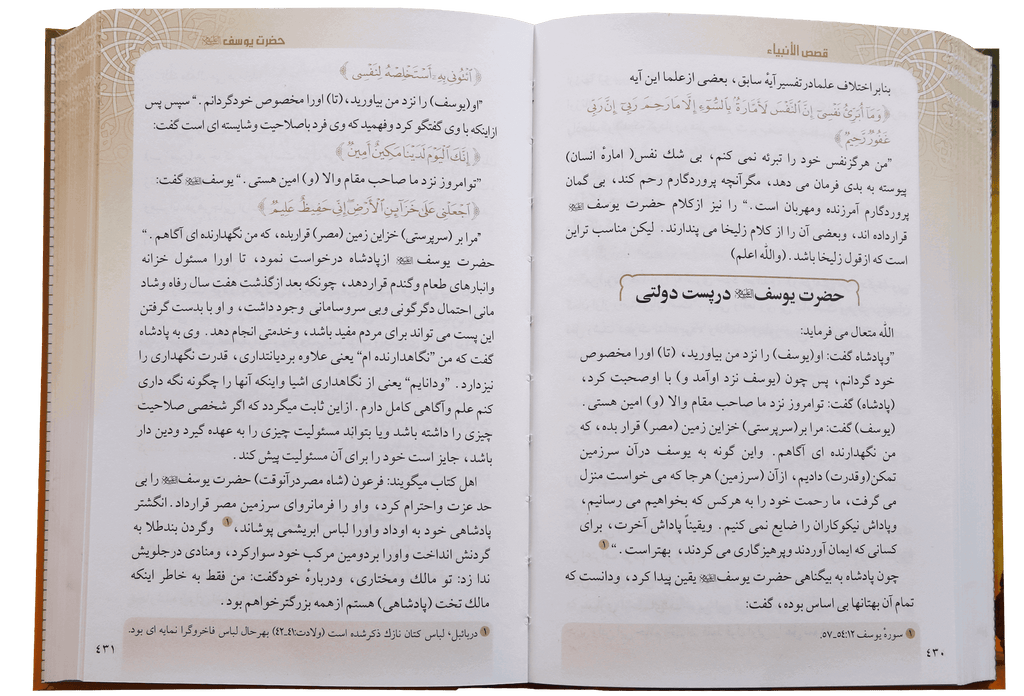 قصص الأنبیاء
بنابر اختلاف علما در تفسیر آیهٔ سابق، بعضی از علما این آیه
﴿وَمَا أُبَرِّئُ نَفْسِي إِنَّ النَّفْسَ لَأَمَّارَةٌ بِالسُّوءِ إِلَّا مَا رَحِمَ رَبِّي إِنَّ رَبِّي
غَفُورٌ رَّحِيمٌ﴾
"من هرگز نفس خود را تبرئه نمی کنم، بی شك نفس( امارهٔ انسان)
پیوسته به بدی فرمان می دهد، مگر آنچه پروردگارم رحم کند، بی گمان
پروردگارم آمرزنده ومهربان است." را نیز از کلام حضرت یوسف
قرارداده اند، وبعضی آن را از کلام زلیخا می پندارند. لیکن مناسب تر این
است که از قول زلیخا باشد. (والله اعلم)
حضرت یوسف در پست دولتی
الله متعال می فرماید:
"وپادشاه گفت: او(یوسف) را نزد من بیاورید، (تا) او را مخصوص
خود گردانم، پس چون (یوسف نزد او آمد و) با او صحبت کرد،
(پادشاه) گفت: تو امروز نزد ما صاحب مقام والا (و) امین هستی.
(یوسف) گفت: مرا بر (سرپرستی) خزاین زمین (مصر) قرار بده، که
من نگهدارنده ای آگاهم. واین گونه به یوسف در آن سرزمین
تمکن(وقدرت) دادیم، از آن (سرزمین) هر جا که می خواست منزل
می گرفت، ما رحمت خود را به هرکس که بخواهیم می رسانیم،
وپاداش نیکوکاران را ضایع نمی کنیم. ویقیناً پاداش آخرت، برای
کسانی که ایمان آوردند وپرهیزگاری می کردند، بهتر است." ١
چون پادشاه به بیگناهی حضرت یوسف یقین پیدا کرد، ودانست که
تمام آن بهتانها بی اساس بوده، گفت:
١ سورهٔ یوسف ١٢:٥٤_٥٧.
٤٣٠
حضرت یوسف
﴿ائْتُونِي بِهِ أَسْتَخْلِصْهُ لِنَفْسِي﴾
"او(یوسف) را نزد من بیاورید، (تا) او را مخصوص خود گردانم." سپس پس
از اینکه با وی گفتگو کرد وفهمید که وی فرد باصلاحیت وشایسته ای است گفت:
﴿إِنَّكَ الْيَوْمَ لَدَيْنَا مَكِينٌ أَمِينٌ﴾
"تو امروز نزد ما صاحب مقام والا (و) امین هستی." یوسف گفت:
﴿اجْعَلْنِي عَلَى خَزَائِنِ الْأَرْضِ إِنِّي حَفِيظٌ عَلِيمٌ﴾
"مرا بر (سرپرستی) خزاین زمین (مصر) قراربده، که من نگهدارنده ای آگاهم."
حضرت یوسف از پادشاه درخواست نمود، تا او را مسئول خزانه
وانبارهای طعام وگندم قرار دهد، چونکه بعد از گذشت هفت سال رفاه وشاد
مانی احتمال دگرگونی وبی سروسامانی وجود داشت، و او با بدست گرفتن
این پست می تواند برای مردم مفید باشد، وخدمتی انجام دهد. وی به پادشاه
گفت که من "نگاهدارنده ام" یعنی علاوه بر دیانتداری، قدرت نگهداری را
نیز دارد. "ودانایم" یعنی از نگاهداری اشیا واینکه آنها را چگونه نگه داری
کنم علم وآگاهی کامل دارم. از این ثابت میگردد که اگر شخصی صلاحیت
چیزی را داشته باشد ویا بتواند مسئولیت چیزی را به عهده گیرد ودین دار
باشد، جایز است خود را برای آن مسئولیت پیش کند.
اهل کتاب میگویند: فرعون (شاه مصر در آنوقت) حضرت یوسف را بی
حد عزت واحترام کرد، واو را فرمانروای سرزمین مصر قرار داد. انگشتر
پادشاهی خود به او داد واورا لباس ابریشمی پوشاند، ١ وگردن بند طلا به
گردنش انداخت واورا بر دومین مرکب خود سوار کرد، ومنادی در جلویش
ندا زد: تو مالك ومختاری، ودربارهٔ خود گفت: من فقط به خاطر اینکه
مالك تخت (پادشاهی) هستم از همه بزرگتر خواهم بود.
١ دربائبل، لباس کتان نازك ذکر شده است (ولادت:٤١_٤٢) بهرحال لباس فاخر وگرا نمایه ای بود.
٤٣١